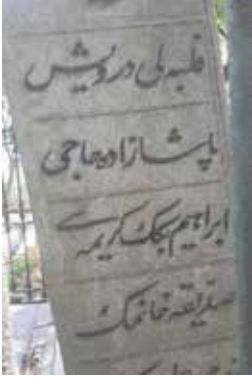 فلبه‌لی درویش
پاشا زاده حاجی
ابراهیم بکک کریمه سی
صدیقه خانمک